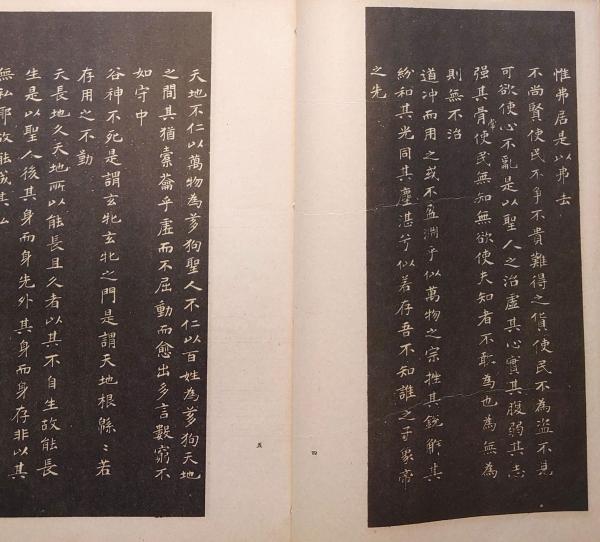 惟弗居是以弗去
不尚賢使民不争不貴難得之貨使民不為盜不見
可欲使心不亂是以聖人之治虛其心實其腹弱其志
强其骨常使民無知無欲使夫知者不敢為也為無為
則無不治
道冲而用之或不盈淵乎似萬物之宗挫其銳解其
紛和其光同其塵湛兮似若存吾不知誰之子象帝
之先
四
天地不仁以萬物為芻狗聖人不仁以百姓為芻狗天地
之間其猶橐籥乎虛而不屈動而愈出多言數窮不
如守中
谷神不死是謂玄牝玄牝之門是謂天地根緜〻若
存用之不勤
天長地久天地所以能長且久者以其不自生故能長
生是以聖人後其身而身先外其身而身存非以其
無私耶故能成其私
五